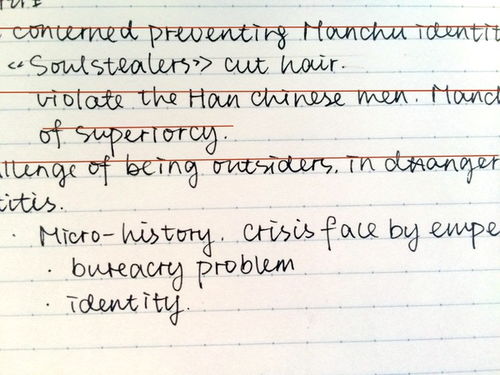 concerned preventing Manchu identit
«Soulstealers» cut hair.
violate the Han Chinese men. Manc
of superiorcy.
llenge of being outsiders. in danger
titis.
· Micro-history. Crisis face by empe
· bureacry problem
· identity.